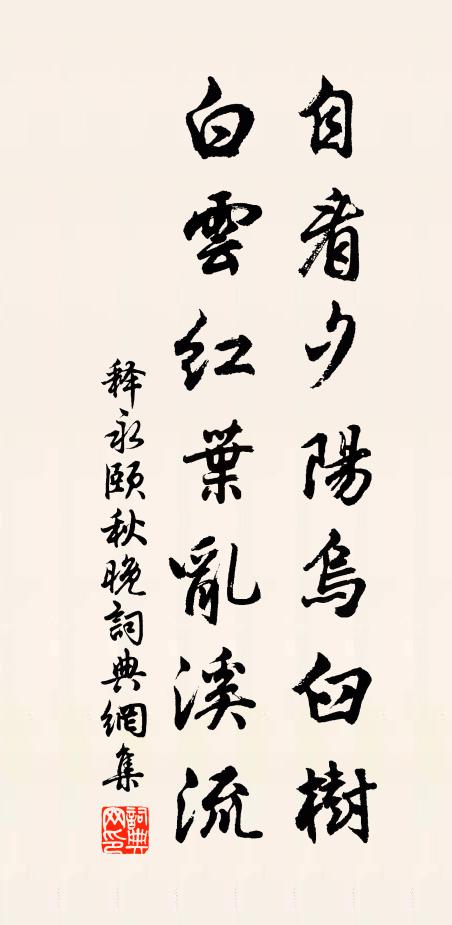 自看夕陽烏臼樹
白雲紅葉亂溪流
释永頤秋晚詞典網集
詞典网印